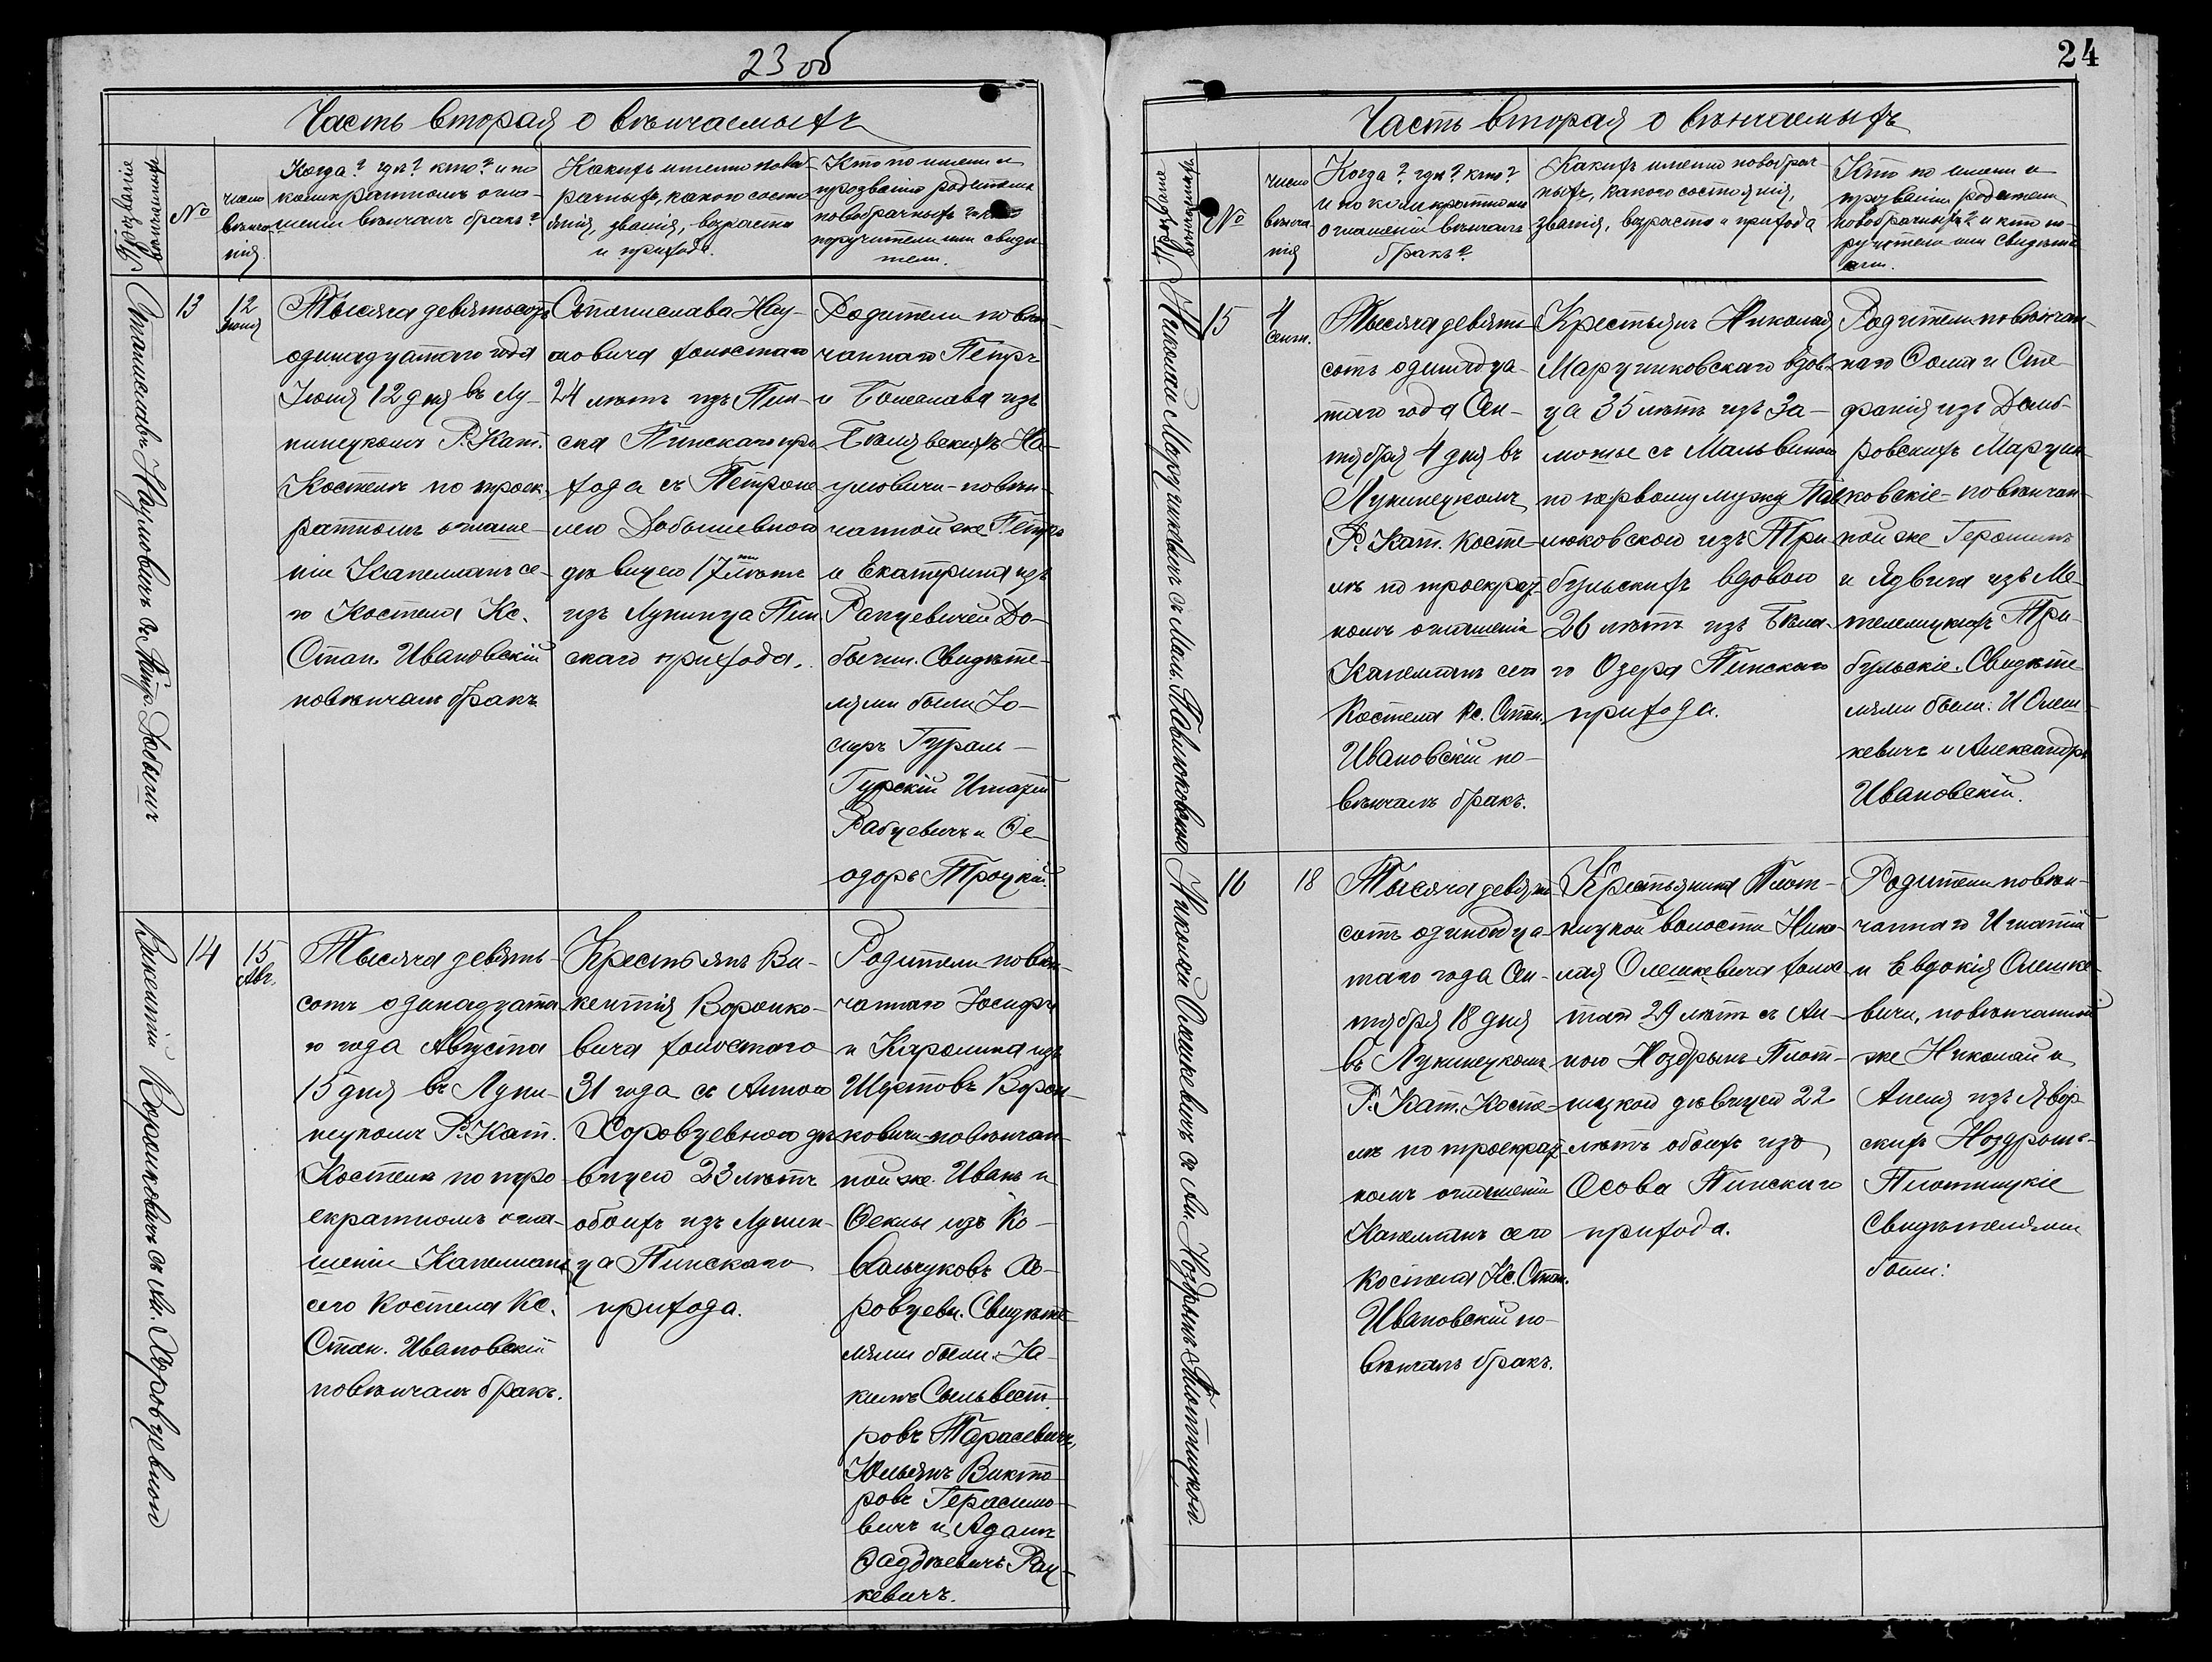 23 об
Часть вторая о вѣнчаемыхъ
№
число вѣнчанія
Когда? гдѣ? кто? и по
коликратномъ огла-
шеніи вѣнчалъ бракъ?
Какихъ именно новоб-
рачныхъ, какого состо-
янія, званія, возраста
и прихода.
Кто по имени и
прозванію родители
новобрачныхъ? и кто
поручители или свидѣ-
тели.
Станиславъ Наумовичъ съ Петр. Добышъ
13
12
Іюня
Тысяча девятьсотъ
одинадцатаго года
Іюня 12 дня въ Лу-
нинецкомъ Р. Кат.
Костелѣ по троек-
ратномъ оглаше-
ніи Капелланъ се-
го Костела Кс.
Стан. Ивановскій
повѣнчалъ бракъ
Станислава Нау-
мовича холостаго
24 лѣтъ изъ Пин-
ска Пинскаго при-
хода съ Петроне-
лею Добышевною
дѣвицею 17ти лѣтъ
изъ Лунинца Пин-
скаго прихода.
Родители повѣн-
чаннаго Петръ
и Болеслава изъ
Бѣлявскихъ На-
умовичи - повѣн-
чанной же Петръ
и Екатерина изъ
Рапцевичей До-
быши. Свидѣте-
лями были Іо-
сифъ Гураль-
Гурскій Игнатій
Рабцевичъ и Ѳе-
одоръ Троцкій.
Викентій Воронковичъ съ Ан. Хоровцевною
14
15
Авг.
Тысяча девять-
сотъ одинадцата-
го года Августа
15 дня въ Луни-
нецкомъ Р. Кат.
Костелѣ по тро-
екратномъ огла-
шеніи Капелланъ
сего Костела Кс.
Стан. Ивановскій
повѣнчалъ бракъ.
Крестьянъ Ви-
кентія Воронко-
вича холостаго
31 года съ Анною
Хоровцевною дѣ-
вицею 23 лѣтъ
обоихъ изъ Лунин-
ца Пинскаго
прихода.
Родители повѣн-
чаннаго Іосифъ
и Каролина изъ
Шустовъ Ворон-
ковичи - повѣнчан-
ной же Иванъ и
Ѳекла изъ Ко-
вальчуковъ Хо-
ровцевы. Свидѣте-
лями были: Іо-
кимъ Сыльвест-
ровъ Тарасевичъ,
Юльянъ Викто-
ровъ Герасимо-
вичъ и Адамъ
Ѳаддѣевичъ Рац-
кевичъ.
24
Часть вторая о вѣнчаемыхъ
№
число вѣнча-
нія
Когда? гдѣ? кто?
и по коликратномъ
оглашеніи вѣнчалъ
бракъ?
Какихъ именно новобрач-
ныхъ, какого состоянія,
званія, возраста и прихода
Кто по имени и
прозванію родители
новобрачныхъ? и кто по-
ручители или свидѣте-
ли.
Николай Марцинкевичъ съ Мальв. Павлюковскою
15
4
Сент.
Тысяча девять-
сотъ одинадца-
таго года Сен-
тября 4 дня въ
Лунинецкомъ
Р. Кат. Косте-
лѣ по троекрат-
номъ оглашеніи
Капелланъ сего
Костела Кс. Стан.
Ивановскій по-
вѣнчалъ бракъ.
Крестьянъ Николая
Марцинковскаго вдов-
ца 35 лѣтъ изъ За-
мошье съ Мальвиною
по первому мужу Пав-
люковскою изъ Три-
бульскихъ вдовою
26 лѣтъ изъ Бѣла-
го Озера Пинскаго
прихода.
Родители повѣнчан-
наго Ѳома и Сте-
фанія изъ Домб-
ровскихъ Марцин-
ковскіе - повѣнчан-
ной же Геронимъ
и Ядвига изъ Ме-
телецкихъ Три-
бульскіе. Свидѣте-
лями были: И Олеш-
кевичъ и Александръ
Ивановскій.
Николай Олешкевичъ съ Ан. Ноздрынъ-Плотницкой
16
18
Тысяча девять-
сотъ одинадца-
таго года Сен-
тября 18 дня
въ Лунинецкомъ
Р. Кат. Косте-
лѣ по троекрат-
номъ оглашеніи
Капелланъ сего
Костела Кс. Стан.
Ивановскій по-
вѣнчалъ бракъ.
Крестьянина Плот-
ницкой волости Нико-
лая Олешкевича холос-
таго 29 лѣтъ съ Ан-
ною Ноздрынъ Плот-
ницкой дѣвицей 22
лѣтъ обоихъ изъ
Осова Пинскаго
прихода.
Родители повѣн-
чаннаго Игнатій
и Евдокія Олешке-
вичи, повѣнчанной
же Николай и
Анеля изъ Явор-
скихъ Ноздрынъ-
Плотницкіе
Свидѣтелями
были: